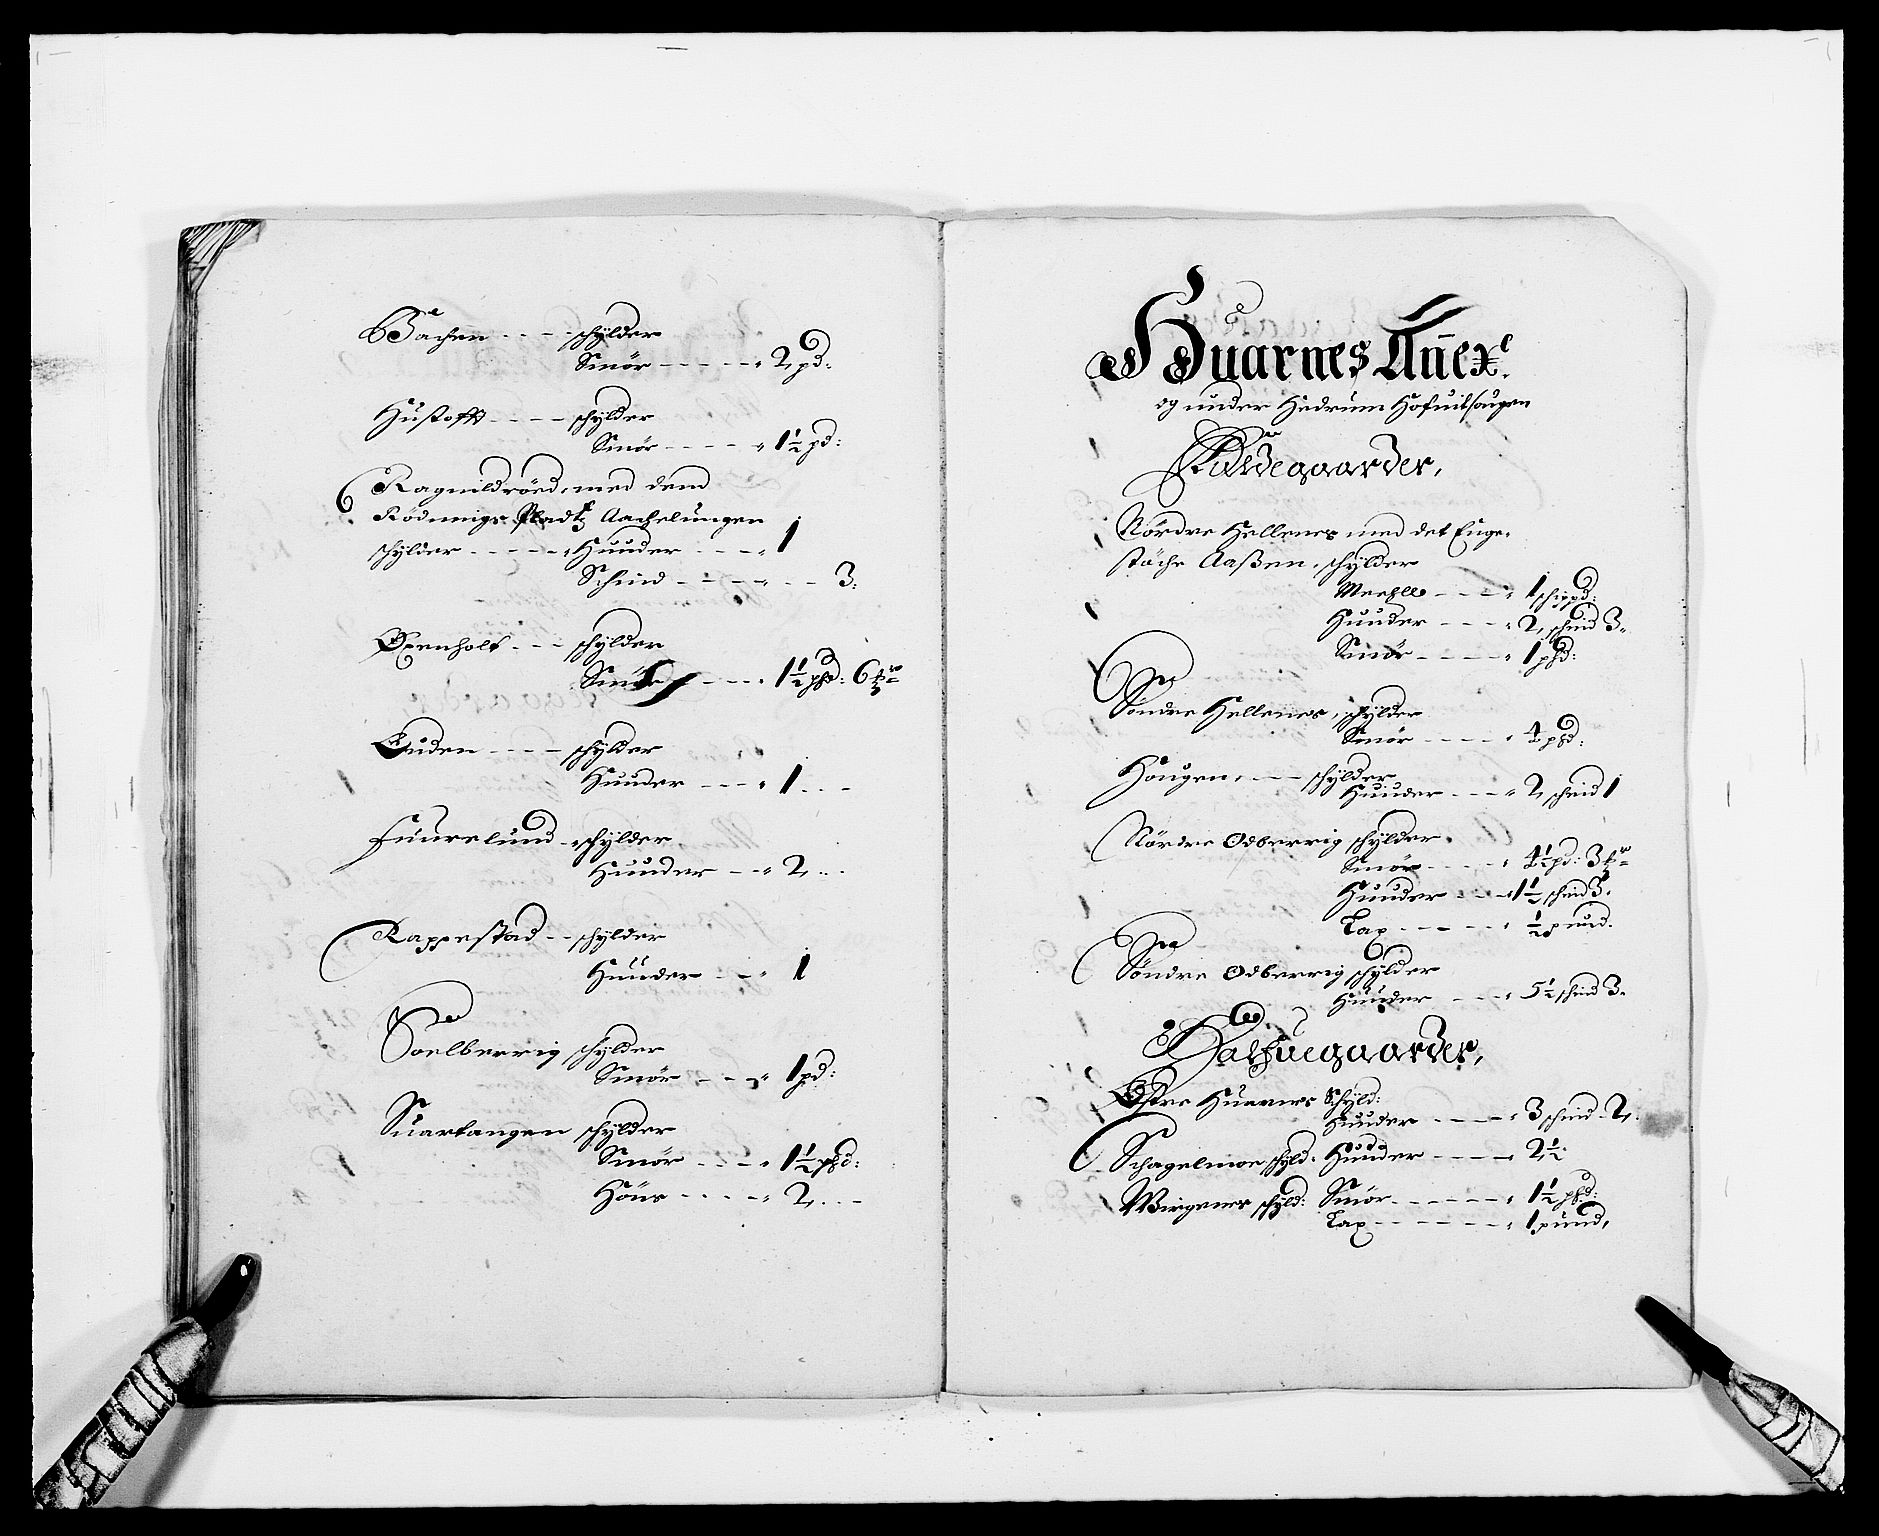 Bachen - - - - schylder
Smör - - - - - " 2 pd:
Hustofft - - - - schylder
Smör - - - - - " 1½ pd:
Ragnildröed, med dend
Rödnings Pladtz Aachelungen
schylder - - - - - " Huuder - - - - " 1
Schind - - - - " - - 3:
Oxenholt - - - schylder
Smör - - - - " 1½ phd: 6
Guden - - - - schylder
Huuder - - - " 1 - - -
Fuurelund - " schylder
Huuder - - " 2 - - -
Rappestad - - schylder
Huuder - - - " 1
Soelberrig schylder
Smör - - - " 1 pd:
Suartangen schylder
Smör - - - - " 1½ phd:
Höns - - - - - " 2 - - -
Huarnes Anex:
og under Hedrum Hofuitsougen
Fuldegaarder,
Nördre Hellenes med det Enge-
stöche Aaßen, schylder
Meehll - - - - " 1 schippd:
Huuder - - - - " 2, schind 3 "
Smör - - - - - " 1 phd:
Söndre Hellenes, schylder
Smör - - - - - " 4 phd:
Hougen, - - - schylder
Huuder - - - - " 2, schind 1
Nördre Odberrig schylder,
Smör - - - - - " 4½ pd: 3
Huuder - - - - " 1½ schind 3:
Lax - - - - - - " ½ pund.
Söndre Odberrig schylder
Huuder - - - - " 5½ schind 3 "
Halfuegaarder,
Östre Huarnes Schyld:
Huuder - - - - - " 3 schind - 2,
Schagelmoe schyld: Huuder - - - - - " 2½
Wirgenes schyld: Smör - - - - - - " 1½ phd:
Lax - - - - - - - " 1 pund,